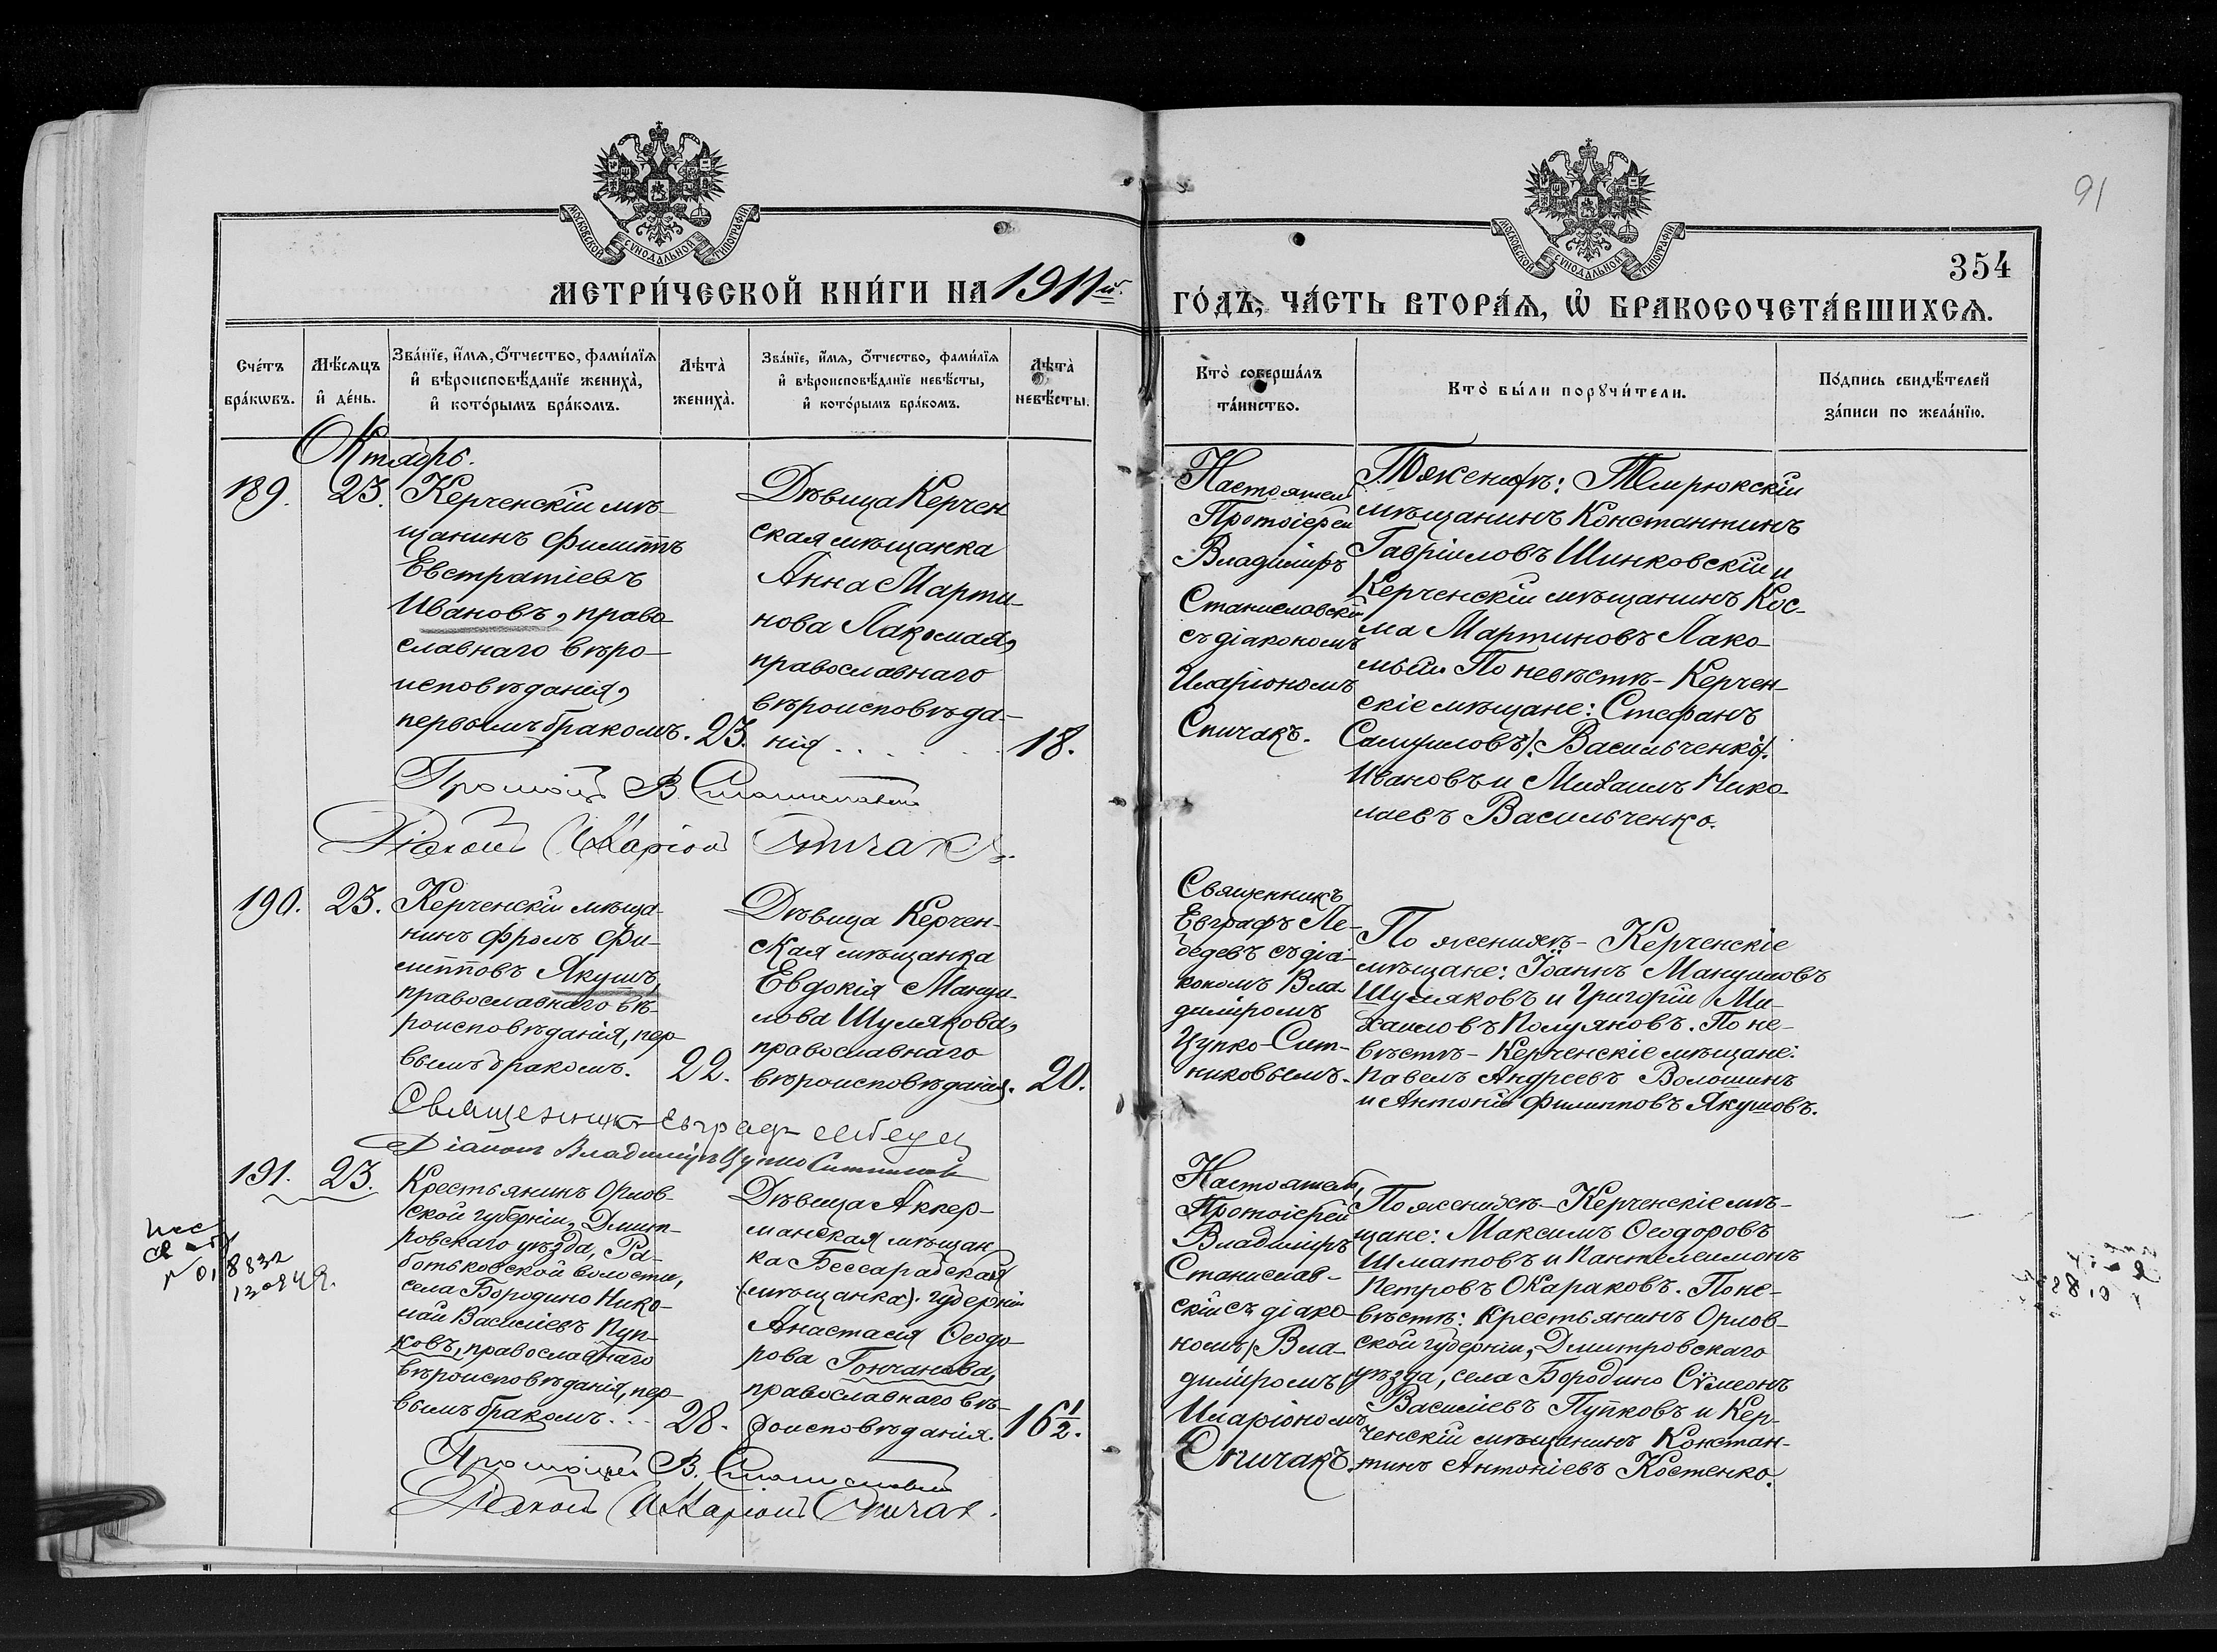 91
МОСКОВСКОЙ СѴНОДАЛЬНОЙ ТИПОГРАФІИ
МОСКОВСКОЙ СѴНОДАЛЬНОЙ ТИПОГРАФІИ
354
МЕТРИ́ЧЕСКОЙ КНИ́ГИ НА 1911й.
ГО́ДЪ, ЧА́СТЬ ВТОРА́Ѧ, Ѡ҆ БРАКОСОЧЕТА́ВШИХСѦ.
Сче́тъ бра́кѡвъ.
Мѣ́сѧцъ и҆ де́нь.
Зва́нїе, и҆́мѧ, ѻ҆́тчество, фами́лїѧ и҆ вѣроисповѣ́данїе жениха̀, и҆ кото́рымъ бра́комъ.
Лѣта̀ жениха̀.
Зва́нїе, и҆́мѧ, ѻ҆́тчество, фами́лїѧ и҆ вѣроисповѣ́данїе невѣ́сты, и҆ кото́рымъ бра́комъ.
Лѣта̀ невѣ́сты.
Кто̀ соверша́лъ та́инство.
Кто̀ бы́ли порꙋчи́тели.
По́дпись свидѣ́телей за́писи по жела́нїю.
Октябрь.
189.
23.
Керченскій мѣ-
щанинъ Филиппъ
Евстратіевъ
Ивановъ, право-
славнаго вѣро-
исповѣданія,
первымъ бракомъ.
23.
Дѣвица Керчен
ская мѣщанка
Анна Марти-
нова Лакомая,
православнаго
вѣроисповѣда-
нія . . . . . .
18.
Настоятель
Протоіерей
Владиміръ
Станиславскій
съ діакономъ
Иларіономъ
Спичакъ.
По женихѣ: Темрюкскій
мѣщанинъ Константинъ
Гавріиловъ Шинковскій и
Керченскій мѣщанинъ Кос-
ма Мартиновъ Лако-
мый. По невѣстѣ - Керчен-
скіе мѣщане: Стефанъ
Самуиловъ /. Васильченко /.
Ивановъ и Михаилъ Нико-
лаевъ Васильченко.
Протоіерей В. Станиславскій
Діаконъ Иларіонъ Спичакъ.
190.
23.
Керченскій мѣща-
нинъ Фролъ Фи-
липповъ Якушъ,
православнаго вѣ-
роисповѣданія, пер-
вымъ бракомъ.
22.
Дѣвица Керчен-
ская мѣщанка
Евдокія Мануи-
лова Шулякова,
православнаго
вѣроисповѣданія.
20.
Священникъ
Евграфъ Ле-
бедевъ съ діа-
кономъ Вла-
диміромъ
Цупко-Сит-
никовымъ.
По женихѣ - Керченскіе
мѣщане: Іоаннъ Мануиловъ
Шуляковъ и Григорій Ми-
хаиловъ Полуяновъ. По не-
вѣстѣ - Керченскіе мѣщане:
Павелъ Андреевъ Волошинъ
и Антоній Филипповъ Якушовъ.
Священникъ Евграфъ Лебедев
Діаконъ Владиміръ Цупко Ситников
191.
23.
Крестьянинъ Орлов-
ской губерніи, Дмит-
ровскаго уѣзда, Ра-
ботьковской волости,
села Бородино Нико-
лай Василіевъ Пуп-
ковъ, православнаго
вѣроисповѣданія, пер-
вымъ бракомъ. . .
28.
Дѣвица Аккер-
манская мѣщан
ка Бессарабская
(мѣщанка). губерніи
Анастасія Ѳеодо-
рова Гончанова,
православнаго вѣ-
роисповѣданія.
16 1/2.
Настоятель,
Протоіерей
Владиміръ
Станислав-
скій съ діако-
номъ / Вла-
диміромъ /
Иларіономъ
Спичакъ.
По женихѣ - Керченскіе мѣ-
щане: Максимъ Ѳеодоровъ
Шматовъ и Пантелеимонъ
Петровъ Окараковъ. По не-
вѣстѣ: Крестьянинъ Орлов-
ской губерніи, Дмитровскаго
уѣзда, села Бородино Сѵмеонъ
Василіевъ Пупковъ и Кер-
ченскій мѣщанинъ Констан-
тинъ Антоніевъ Костенко.
Протоіерей В. Станиславскій
Діаконъ Иларіонъ Спичак.